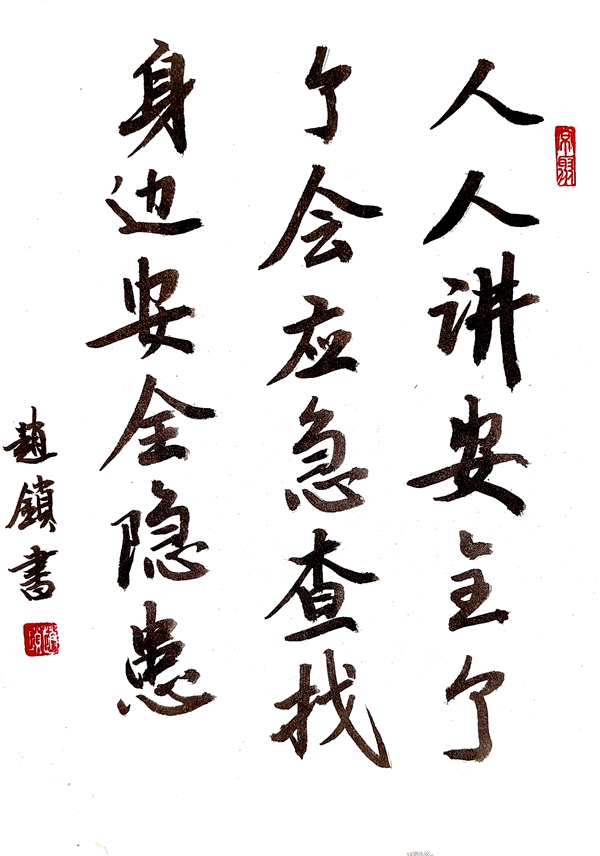 人人讲安全个
个会应急查找
身边安全隐患
趙鎖書